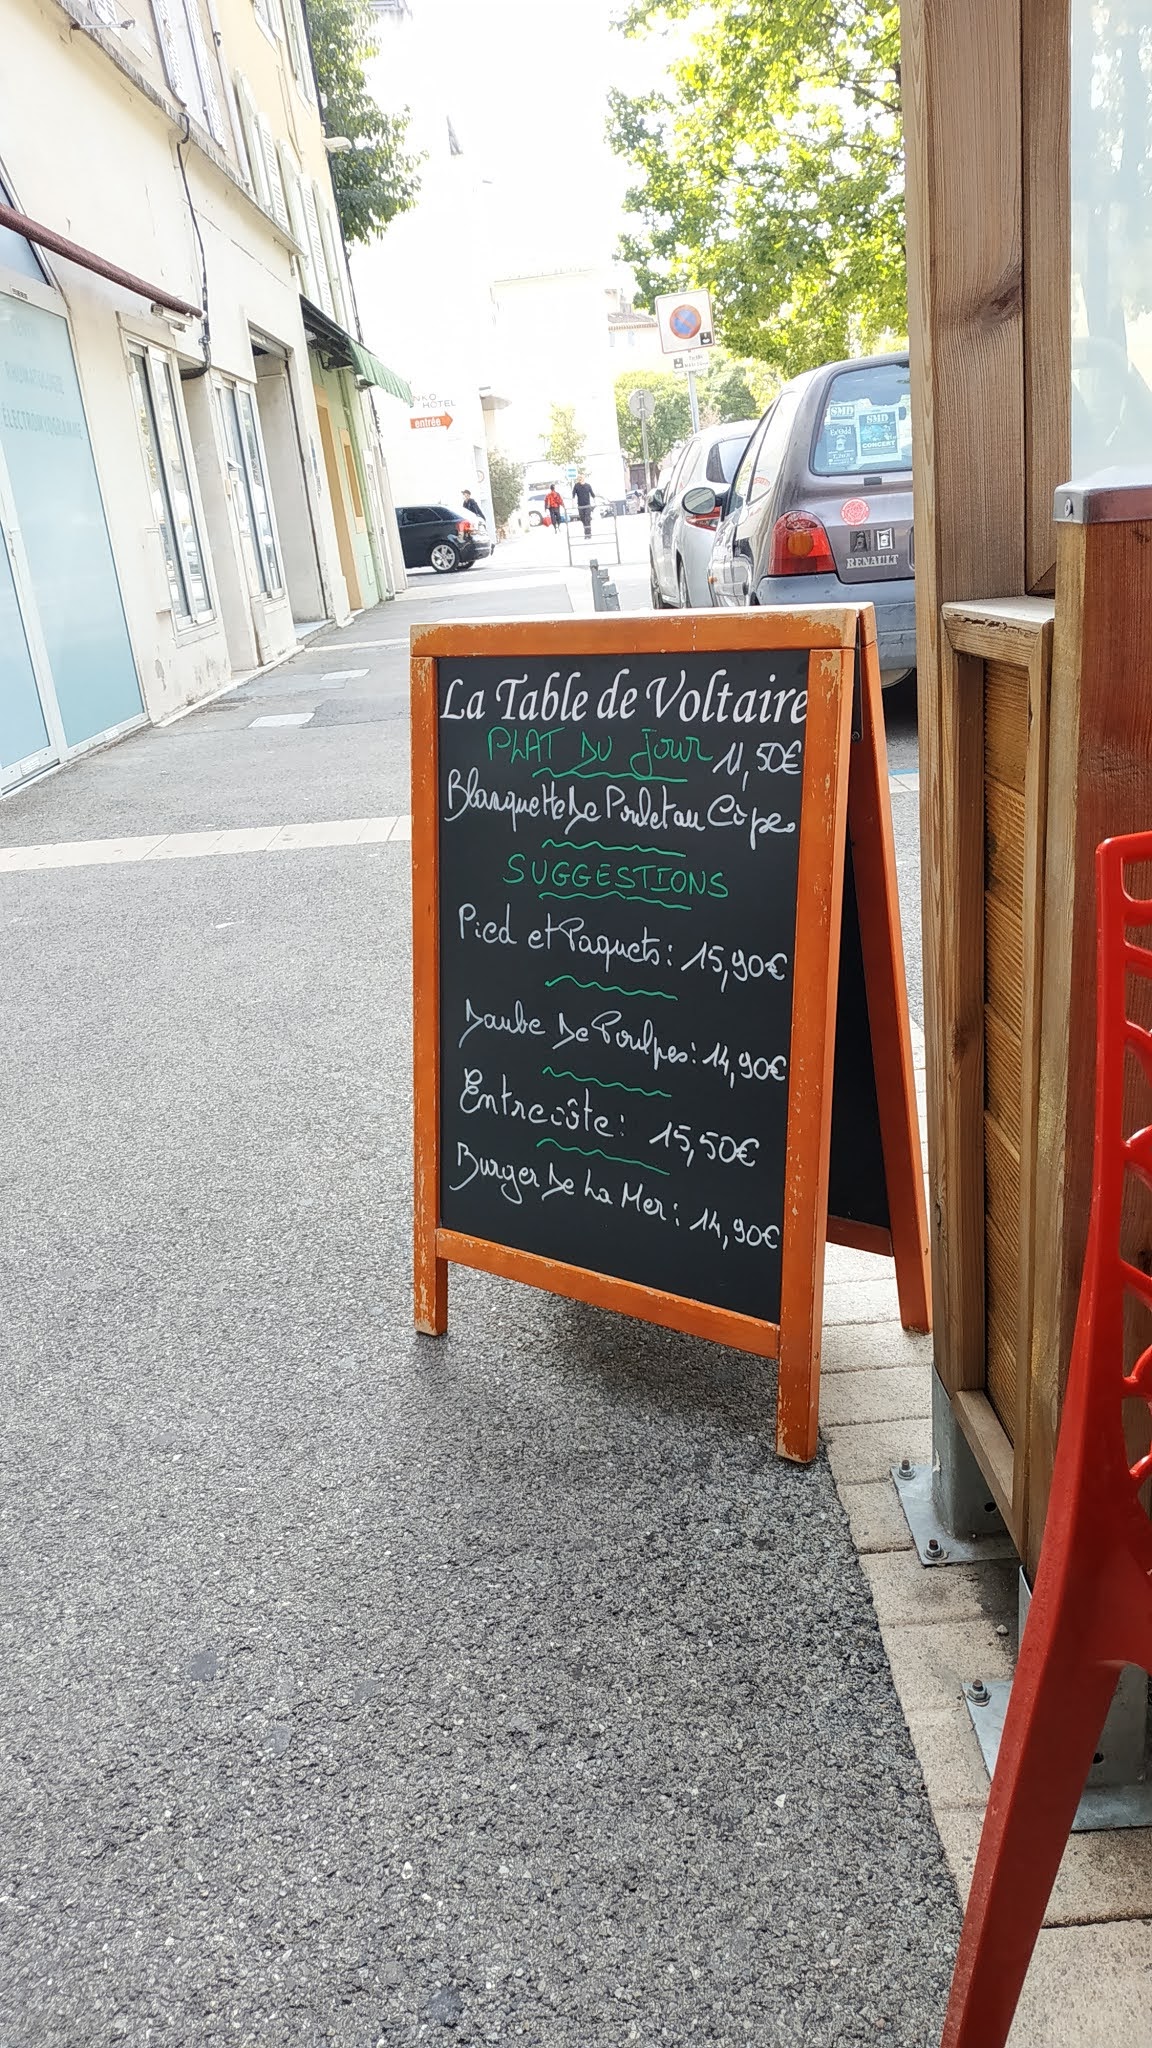 La Table de Voltaire
PLAT DU Jour 11,50€
Blanquette De Poulet au Cèpes
SUGGESTIONS
Pied et Paquets: 15,90€
Daube De Poulpes: 14,90€
Entrecôte: 15,50€
Burger De La Mer: 14,90€
RHUMATOLOGIE
ELECTROMYOGRAMME
NKO
HOTEL
entrée
SMD
SMD
CONCERT
RENAULT